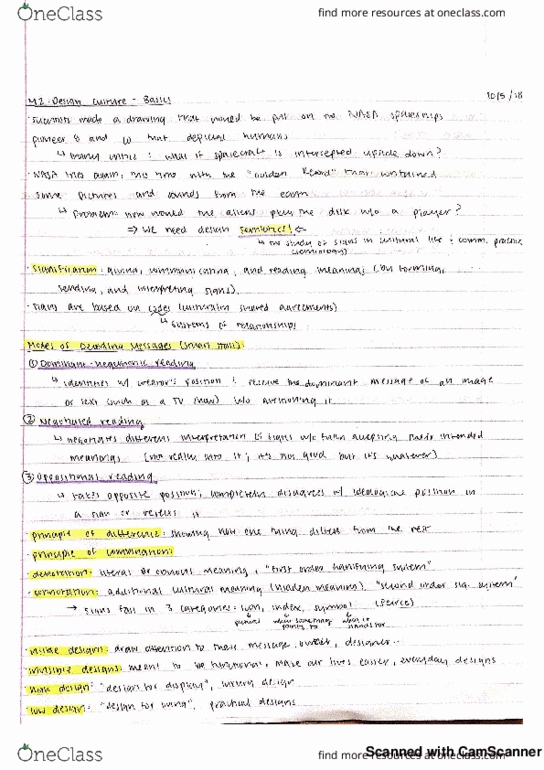 OneClass
find more resources at oneclass.com
M2: Design Culture - Basics 10/5/18
scientists made a drawing that would be put on the NASA spaceships
pioneer 8 and 10 that depicted humans
↳ many critics: what if spacecraft is intercepted upside down?
NASA tries again, this time with the "Golden Record" that contained
some pictures and sounds from the earth
↳ Problem: how would the aliens play the disk w/o a player?
⇒ We need design semiotics! ←
↳ the study of signs in cultural life : comm. practice
signification: giving, communicating, and reading meaning; (by forming,
sending, and interpreting signs).
signs are based on codes (culturally shared agreements)
↳ systems of relationships
Modes of Decoding Messages (Stuart Hall):
① Dominant-hegemonic reading
↳ identifies w/ creator's position & receive the dominant message of an image
or text (such as a TV show) w/o questioning it
② Negotiated reading
↳ negotiates different interpretation of signs w/o fully accepting their intended
meanings (not really into it; it's not good but it's whatever)
③ oppositional reading
↳ takes opposite position; completely disagrees w/ ideological position in
a sign or rejects it
principle of difference: showing how one thing differs from the rest
principle of combination:
denotation: literal or obvious meaning, "first order signifying system"
connotation: additional cultural meaning (hidden meaning), "second order sig. system"
→ signs fall in 3 categories: icon, index, symbol (Peirce)
visible designs: draw attention to their message, owner, designer..
invisible designs: meant to be functional, make our lives easier, everyday designs
high design: "design for display", luxury design
low design: "design for using", practical designs
Scanned with CamScanner
OneClass
find more resources at oneclass.com